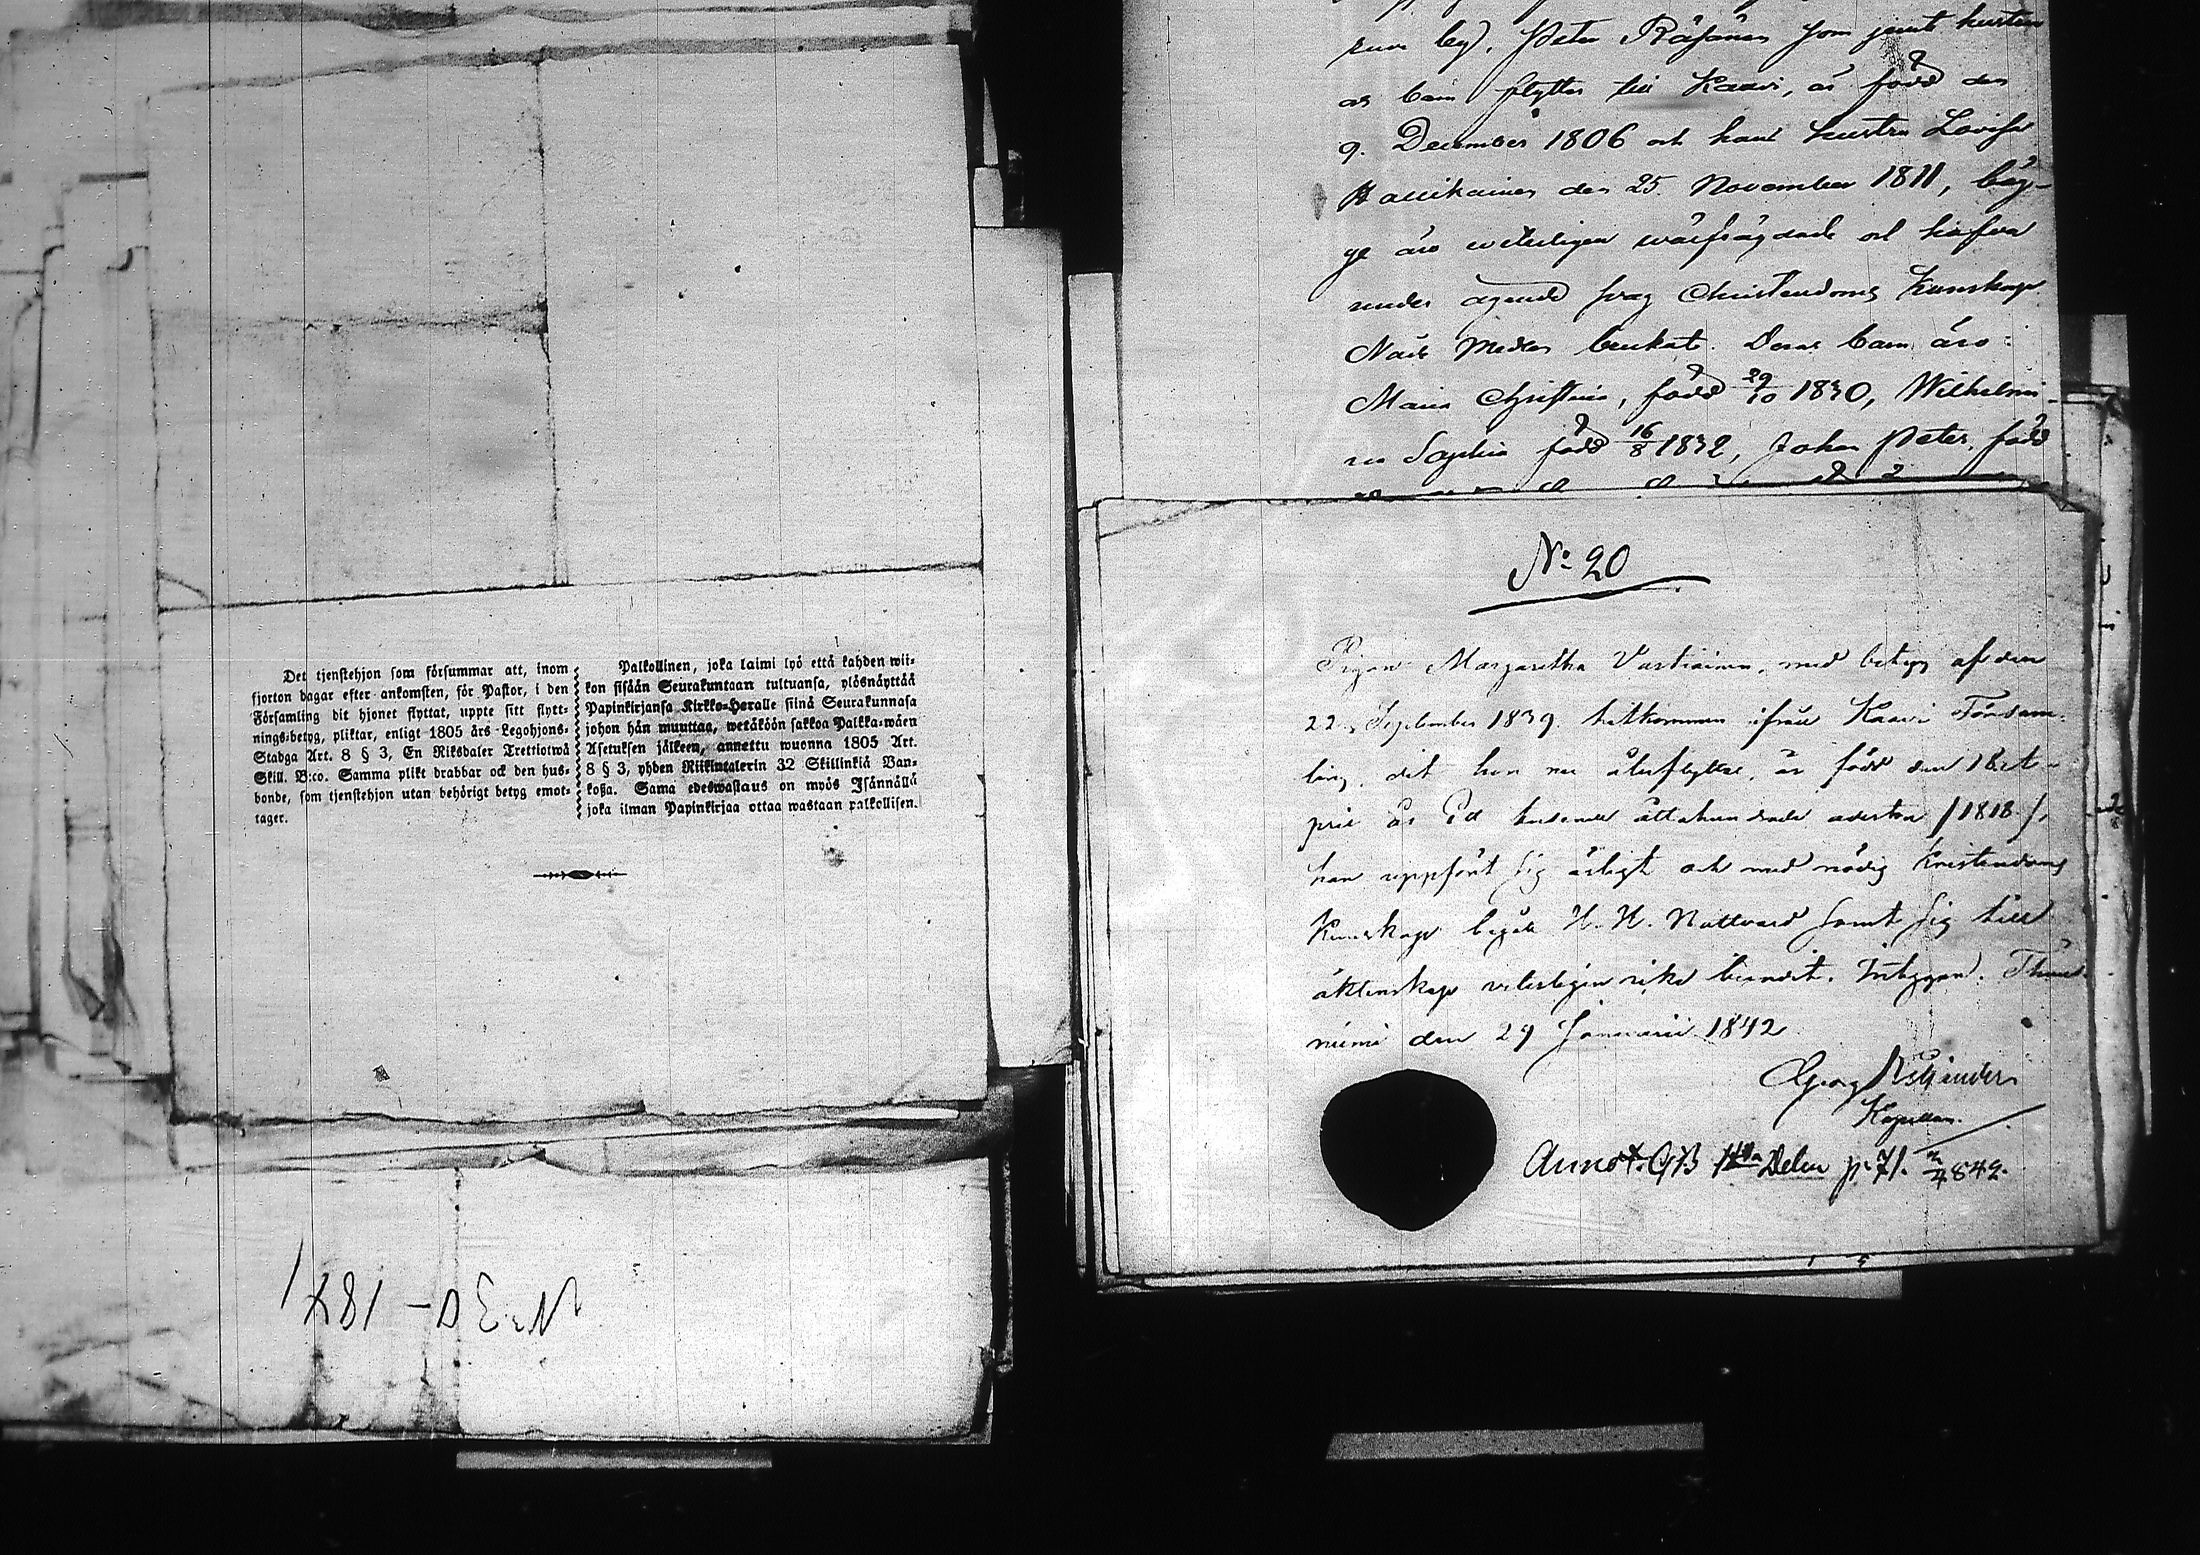 Det tjenstehjon som försummar att, inom
fjorton dagar efter ankomsten, för Pastor, i den
Församling dit hjonet flyttat, uppte sitt flytt-
nings-betyg, pliktar, enligt 1805 års Legohjons-
Stadga Art. 8 § 3, En Riksdaler Trettiotwå
Skill. B:co. Samma plikt drabbar ock den hus-
bonde, som tjenstehjon utan behörigt betyg emot-
tager.
Palkollinen, joka laimi lyö että kahden wii-
kon sisään Seurakuntaan tultuansa, ylösnäyttää
Papinkirjansa Kirkko-Herralle siinä Seurakunnasa
johon hän muuttaa, wetäköön sakkoa Palkka-wäen
Asetuksen jälkeen, annettu wuonna 1805 Art.
8 § 3, yhden Riikintalerin 32 Skillinkiä Ban-
koßa. Sama edeswastaus on myös Isännällä
joka ilman Papinkirjaa ottaa wastaan palkollisen.
N:30 - 1841
by, Peter Räsänen som jemte hustru
och barn flyttar till Kaavi, är född den
9. December 1806 och hans hustru Lovisa
Haukainen den 25 November 1811, bäg-
ge äro och hafva
under ägande svag Christendoms kunskap
Nåde Medlen brukat. Deras barn äro:
Maria Christina, född 29/10 1830, Wilhelmi-
na Sophia född 16/8 1832, Johan Peter, född
N:o 20
Pigan Margaretha Vartiainen, med betyg af den
22. September 1839 hitkommen ifrån Kaavi Försam-
ling, dit hon nu återflyttar, är född den 18 A-
pril år Ett tusende åttahundrade aderton /1818/,
har uppfört sig ärligt och med nödig kristendoms
kunskap begått H. H. Nattvard samt sig till
äktenskap veterligen icke bundit. Intygar.
niemi den 29 Januarii 1842
Georg
Kapellan.
Annot. C/B Delen p. 71. 1842.